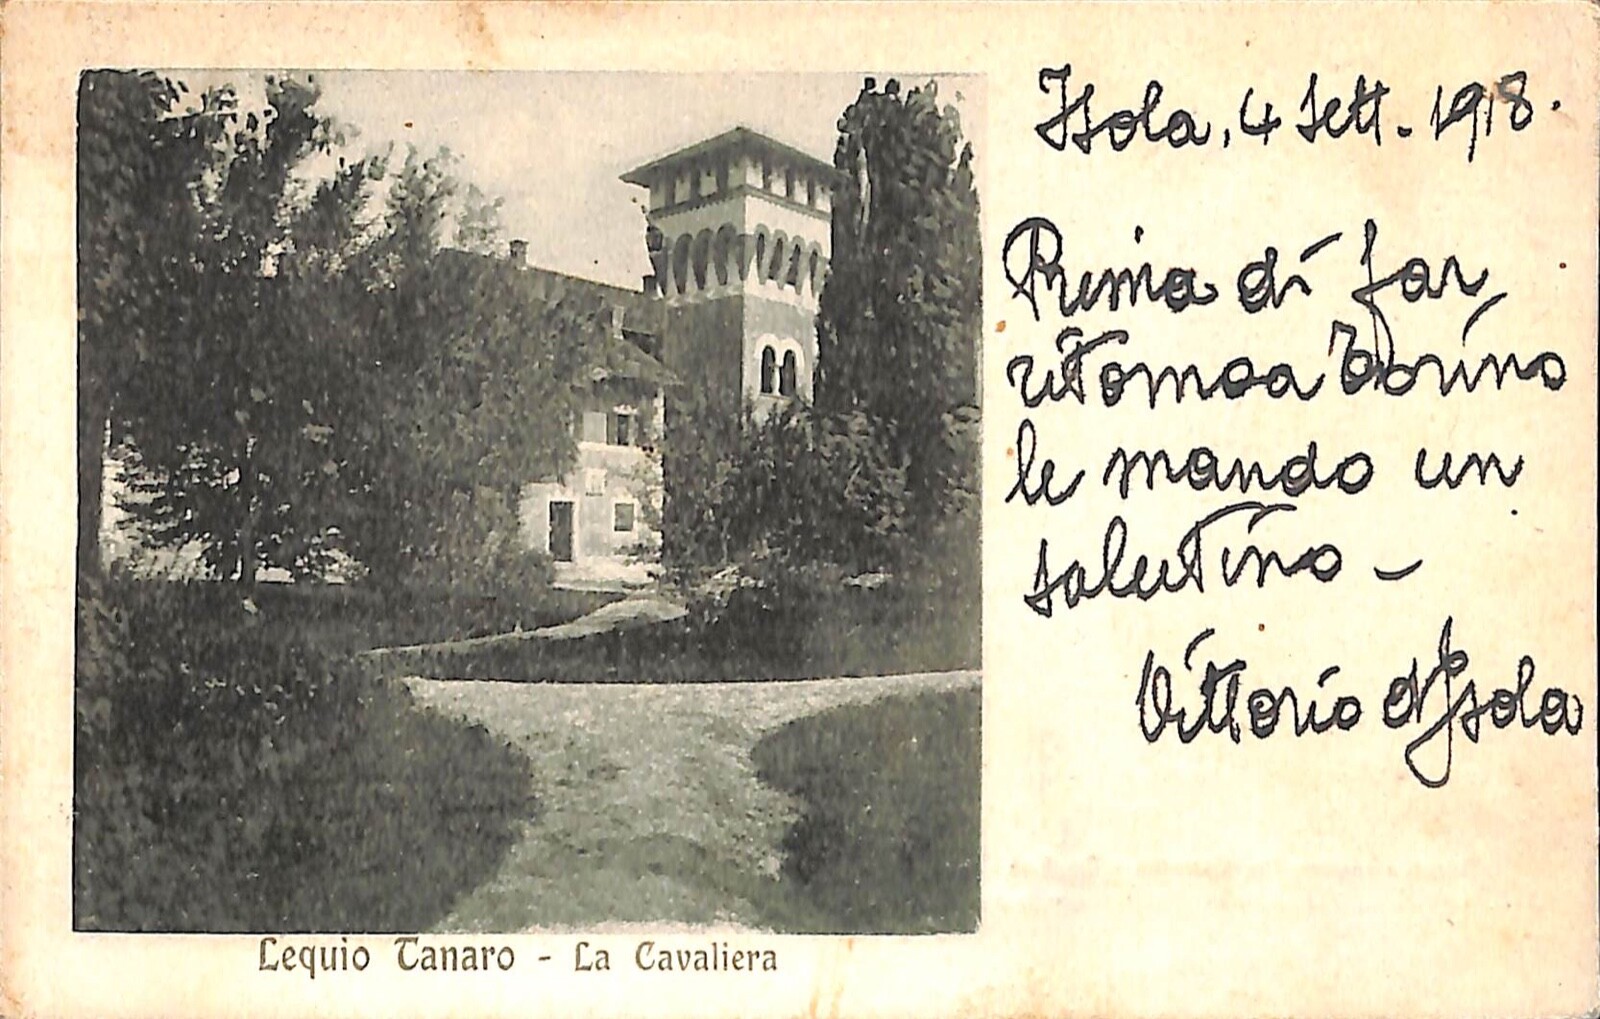 Isola, 4 Sett. 1918.
Prima di far
ritorno a Torino
le mando un
salutino -
Vittorio d'Isola
Lequio Tanaro - La Cavaliera